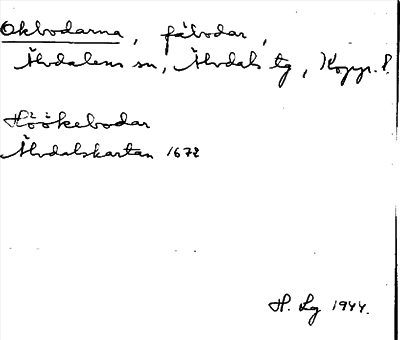 Okbodarna, fäbodar,
Älvdalens sn, Älvdals tg, Kopp. l.
Höökebodar
Älvdalskartan 1672
H. Lg 1944.